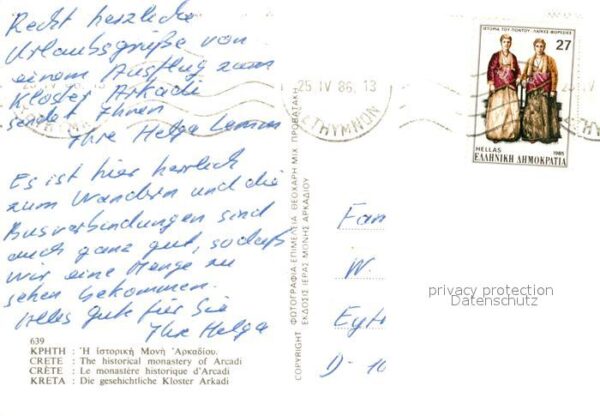 Recht herzliche
Urlaubsgrüße von
einem Ausflug zum
Kloster Arkadi
sendet Ihnen
Ihre Helga Lemm
Es ist hier herrlich
zum Wandern und die
Busverbindungen sind
auch ganz gut, so daß
wir eine Menge zu
sehen bekommen.
Alles gute für Sie
Ihre Helga
639
ΚΡΗΤΗ : Ἡ ἱστορικὴ Μονὴ Ἀρκαδίου.
CRETE : The historical monastery of Arcadi
CRÈTE : Le monastère historique d'Arcadi
KRETA : Die geschichtliche Kloster Arkadi
COPYRIGHT ΦΩΤΟΓΡΑΦΙΑ·ΕΠΙΜΕΛΕΙΑ ΘΕΟΧΑΡΗ ΜΙΧ. ΠΡΟΒΑΤΑΚΗ
ΕΚΔΟΣΙΣ ΙΕΡΑΣ ΜΟΝΗΣ ΑΡΚΑΔΙΟΥ
25 IV 86. 13
ΙΣΤΟΡΙΑ ΤΟΥ ΠΟΝΤΟΥ - ΛΑΪΚΕΣ ΦΟΡΕΣΙΕΣ
27
HELLAS 1985
ΕΛΛΗΝΙΚΗ ΔΗΜΟΚΡΑΤΙΑ
Fam
W.
D-10
privacy protection
Datenschutz